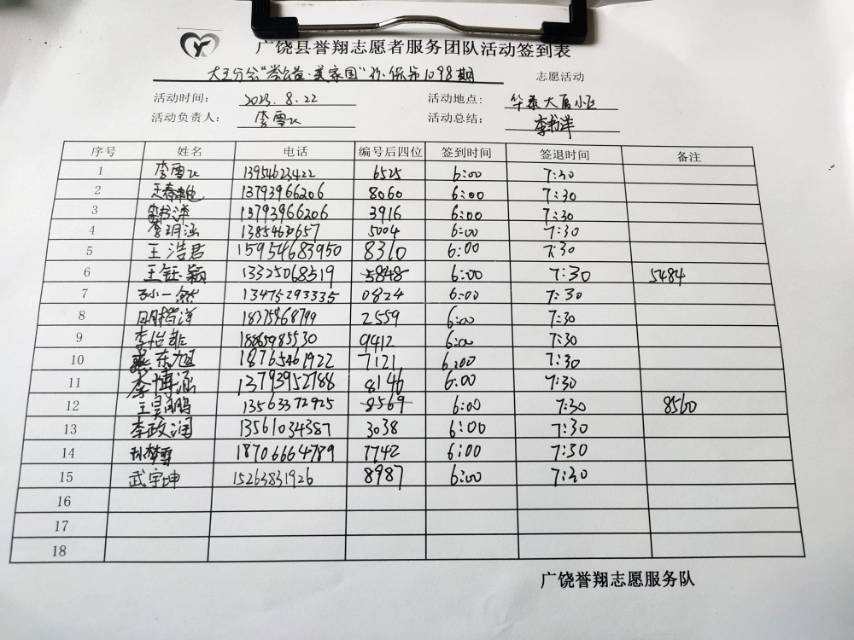 广饶县誉翔志愿者服务团队活动签到表
大王分公"益·美家园"环保第1098期 志愿活动
活动时间: 2023.8.22 活动地点: 华泰大厦小区
活动负责人: 李雪 活动总结: 李书洋
序号 姓名 电话 编号后四位 签到时间 签退时间 备注
1 李雪 13954623422 6525 6:00 7:30
2 13793966206 8060 6:00 7:30
3 李书洋 13793966206 3916 6:00 7:30
4 李玥涵 13854630657 5004 6:00 7:30
5 王浩君 15954683950 8310 6:00 7:30
6 王钰颖 13325068519 5848 6:00 7:30 5484
7 孙一然 13475293335 0824 6:00 7:30
8 18375468799 2559 6:00 7:30
9 李怡菲 18865985530 9412 6:00 7:30
10 燕东旭 18765461922 7121 6:00 7:30
11 李博涵 13793952788 8146 6:00 7:30
12 王昊鹏 13563372925 8569 6:00 7:30 8560
13 李政润 13561034387 3038 6:00 7:30
14 孙梦雪 18706664789 7742 6:00 7:30
15 武宇坤 15263831926 8987 6:00 7:30
16
17
18
广饶誉翔志愿服务队